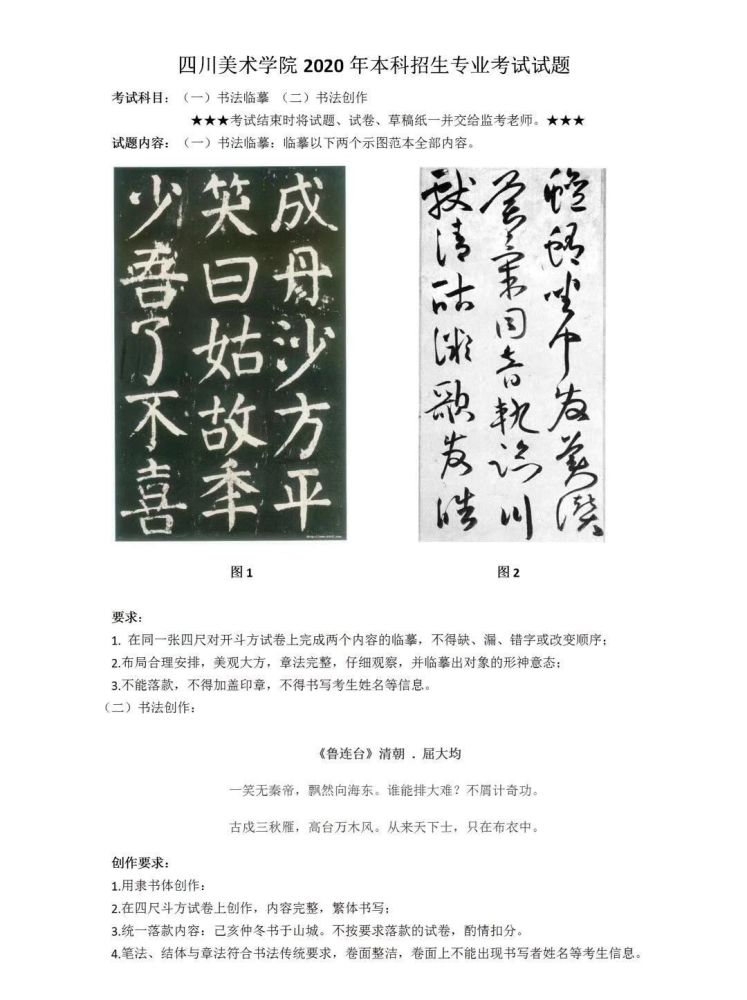 四川美术学院 2020 年本科招生专业考试试题
考试科目：（一）书法临摹 （二）书法创作
★★★考试结束时将试题、试卷、草稿纸一并交给监考老师。★★★
试题内容：（一）书法临摹：临摹以下两个示图范本全部内容。
成丹沙方平
笑曰姑故年
少吾了不喜
图 1
图 2
要求：
1. 在同一张四尺对开斗方试卷上完成两个内容的临摹，不得缺、漏、错字或改变顺序；
2.布局合理安排，美观大方，章法完整，仔细观察，并临摹出对象的形神意态；
3.不能落款，不得加盖印章，不得书写考生姓名等信息。
（二）书法创作：
《鲁连台》清朝 . 屈大均
一笑无秦帝，飘然向海东。谁能排大难？不屑计奇功。
古戍三秋雁，高台万木风。从来天下士，只在布衣中。
创作要求：
1.用隶书体创作：
2.在四尺斗方试卷上创作，内容完整，繁体书写；
3.统一落款内容：己亥仲冬书于山城。不按要求落款的试卷，酌情扣分。
4.笔法、结体与章法符合书法传统要求，卷面整洁，卷面上不能出现书写者姓名等考生信息。